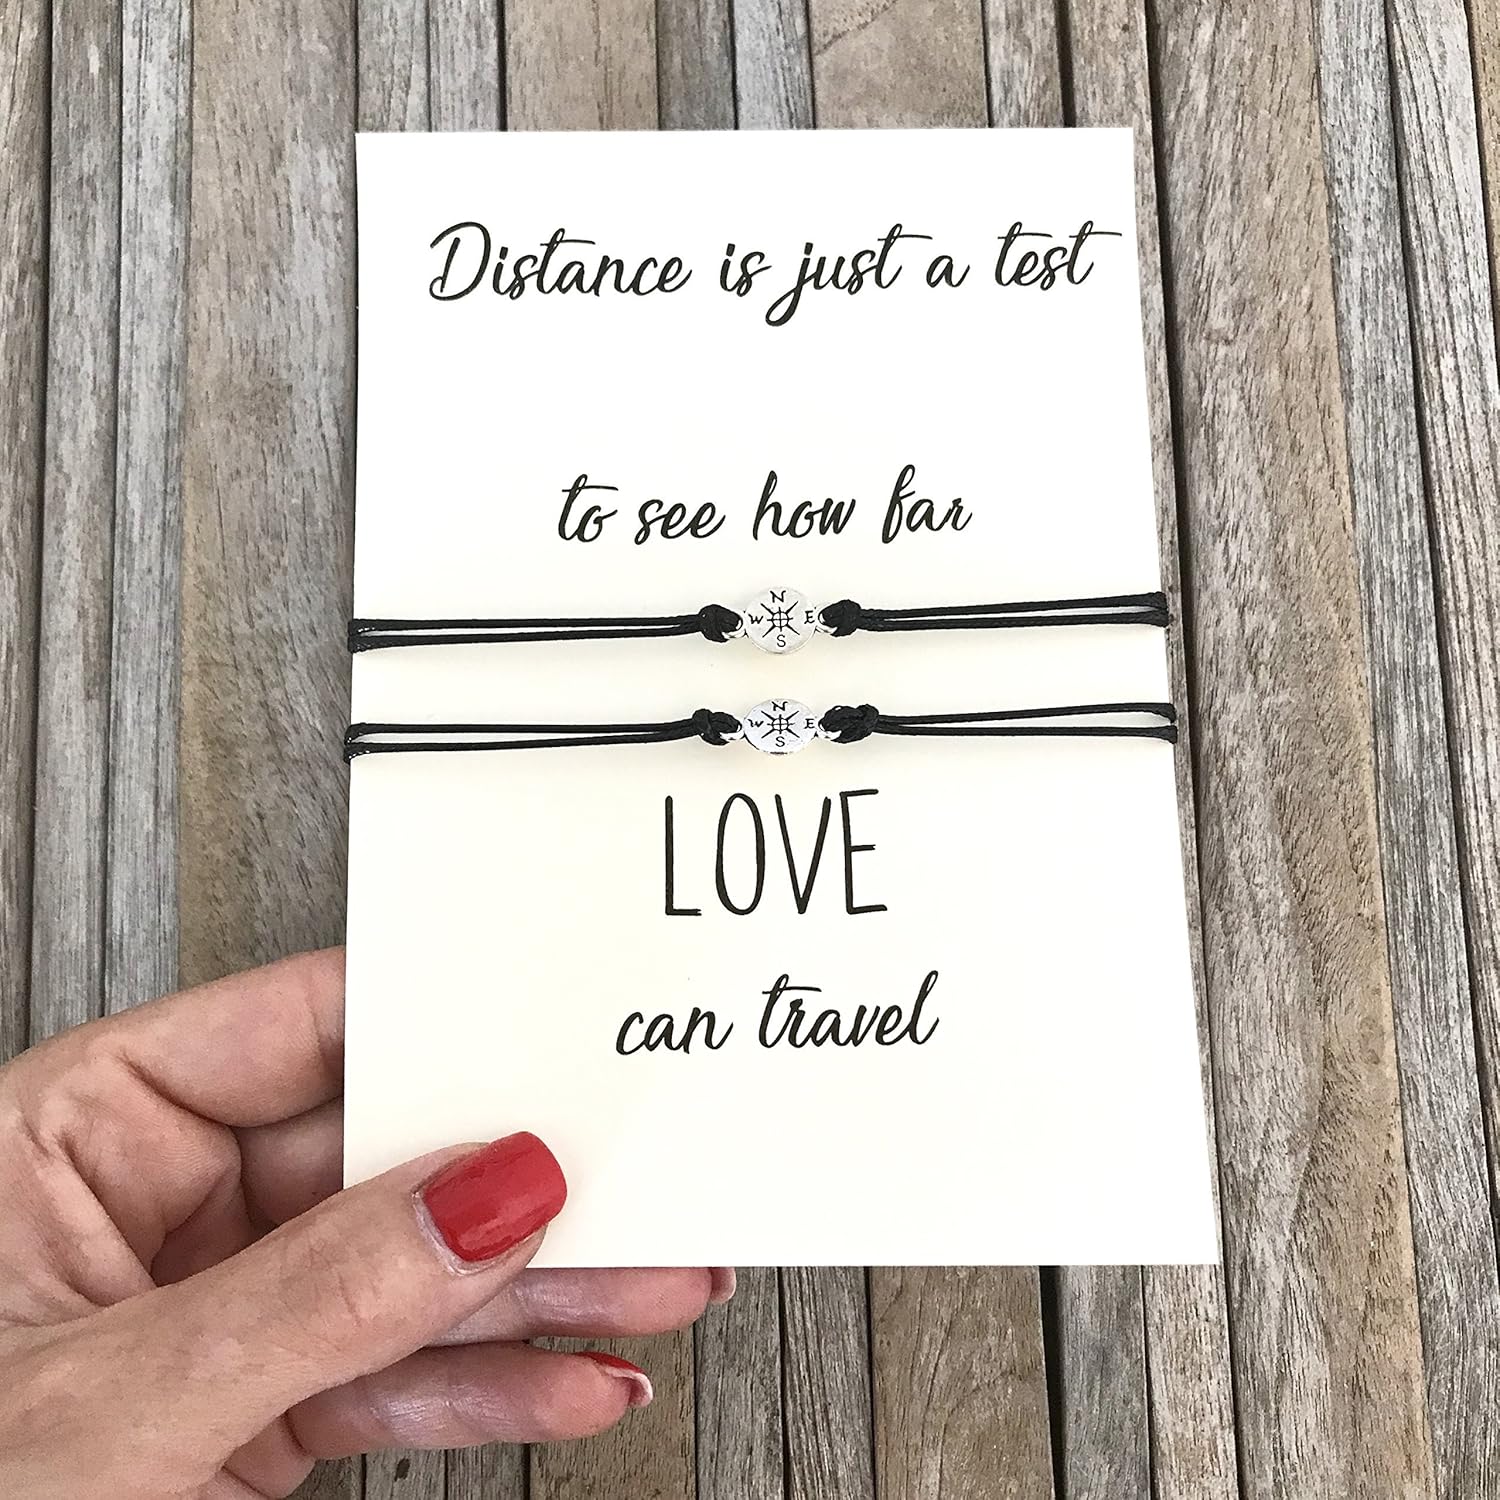 Distance is just a test
to see how far
N
W E
S
N
W E
S
LOVE
can travel